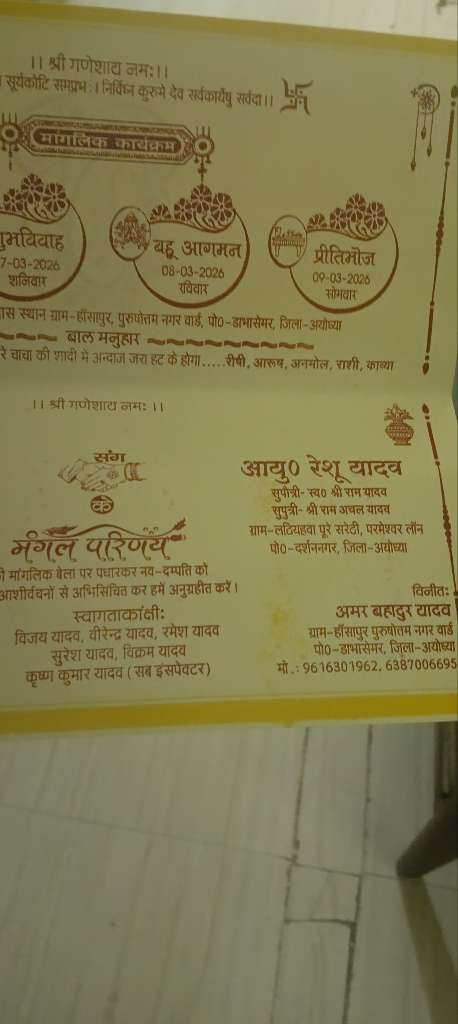 ।। श्री गणेशाय नमः।।
सूर्यकोटि समप्रभः। निर्विघ्नं कुरुमे देव सर्वकार्येषु सर्वदा।।
मांगलिक कार्यक्रम
बहू आगमन
08-03-2026
रविवार
प्रीतिभोज
09-03-2026
सोमवार
7-03-2026
शनिवार
स्थान ग्राम-हाँसापुर, पुरुषोत्तम नगर वार्ड, पो0-डाभासेमर, जिला-अयोध्या
बाल मनुहार
चाचा की शादी में अन्दाज जरा हट के होगा.....रीषी, आरुष, अनमोल, राशी, काव्या
।। श्री गणेशाय नमः ।।
संग
के
मंगल परिणय
मांगलिक बेला पर पधारकर नव-दम्पति को
आशीर्वचनों से अभिसिंचित कर हमें अनुग्रहीत करें।
स्वागताकांक्षीः
विजय यादव, वीरेन्द्र यादव, रमेश यादव
सुरेश यादव, विक्रम यादव
कृष्ण कुमार यादव (सब इंसपेक्टर)
आयु0 रेशू यादव
सुपौत्री- स्व0 श्री राम यादव
सुपुत्री- श्री राम अचल यादव
ग्राम-लठियहवा पूरे सरेठी, परमेश्वर लॉन
पो0-दर्शननगर, जिला-अयोध्या
विनीतः
अमर बहादुर यादव
ग्राम-हाँसापुर पुरुषोत्तम नगर वार्ड
पो0-डाभासेमर, जिला-अयोध्या
मो.: 9616301962, 6387006695